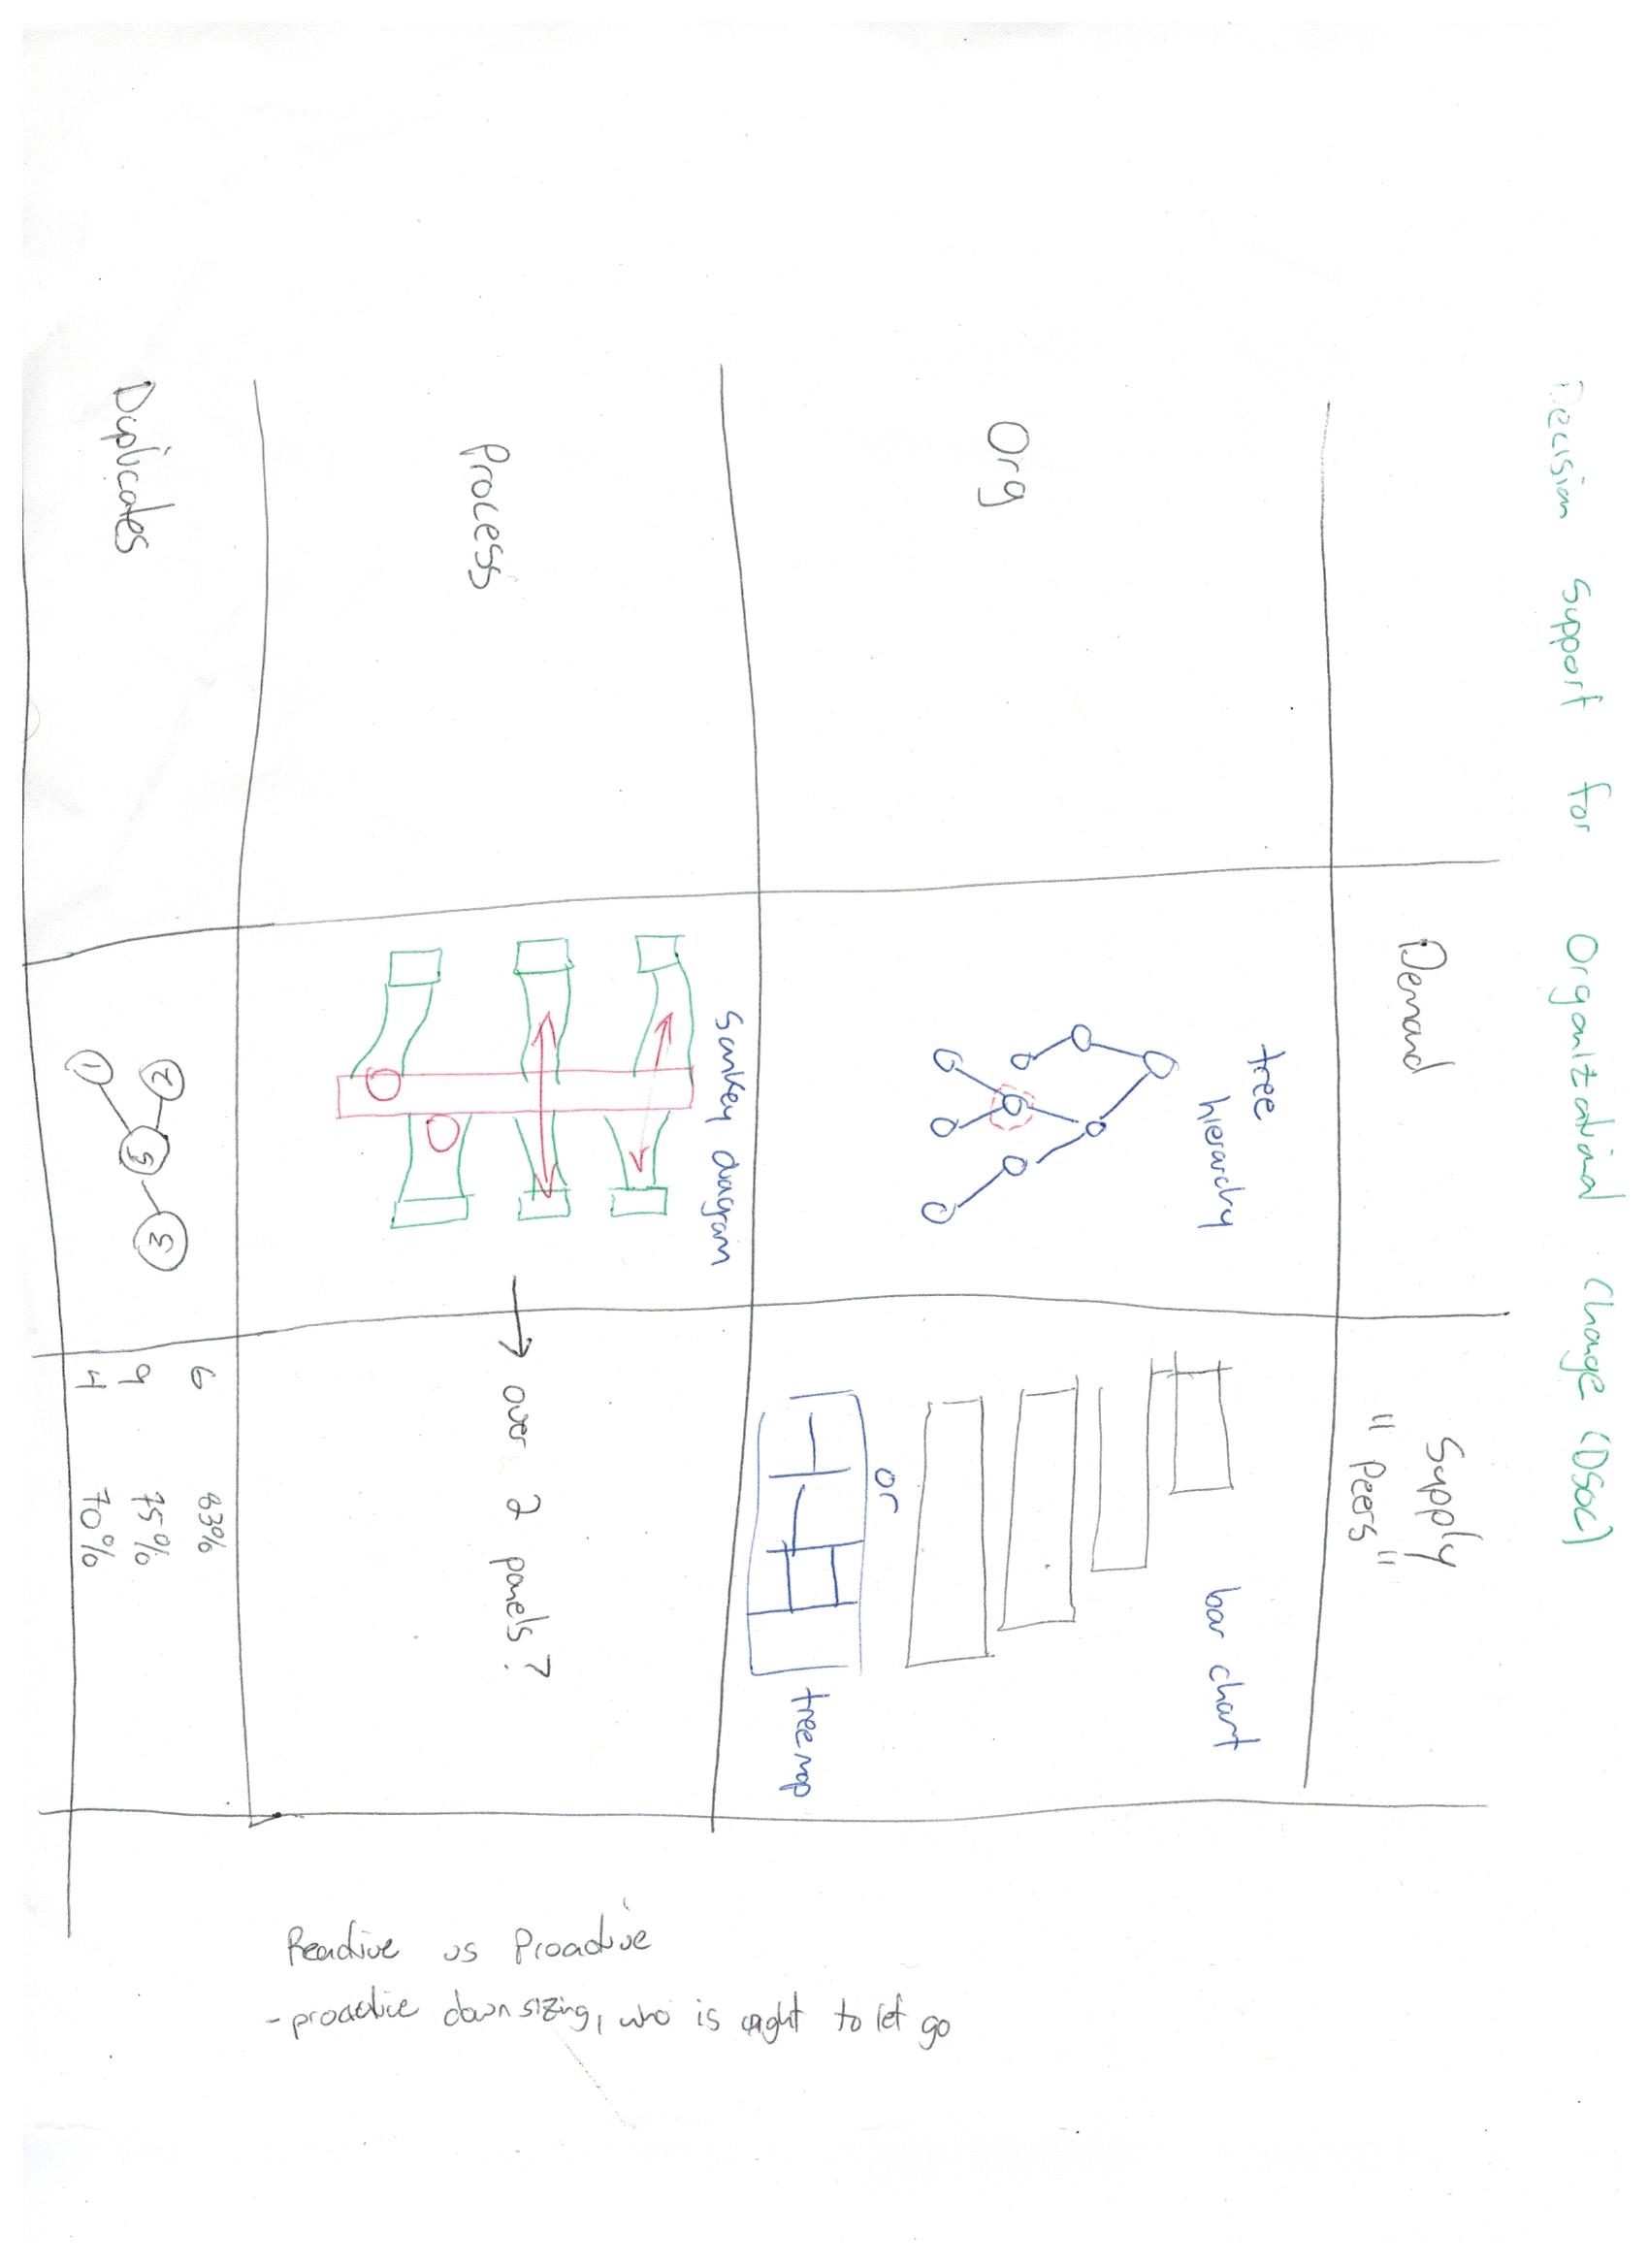 Decision Support for Organizational Change (DSOC)
Demand
Supply
"Peers"
Org
tree
hierarchy
bar chart
or
treemap
Process
Sankey diagram
→ over 2 panels?
Duplicates
1
2
5
3
6 83%
9 75%
4 70%
Reactive vs Proactive
- proactive downsizing, who is right to let go